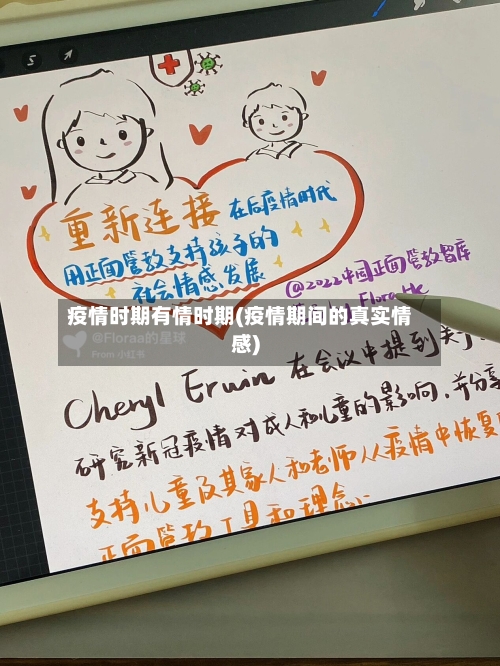 重新连接 在后疫情时代
用正面管教支持孩子的
社会情感发展
@2022中国正面管教智库
疫情时期有情时期(疫情期间的真实情
感)
@Floraa的星球
From 小红书
Cheryl Erwin 在会议中提到关于
研究新冠疫情对成人和儿童的影响，并分享
支持儿童及其家人和老师从疫情中恢复
正面管教工具和理念